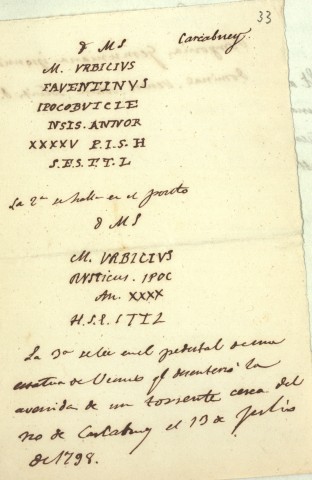 33
Carcabuey
D MS
M. VRBICIVS
FAVENTINVS
IPOCOBVLCLE
NSIS. ANNOR
XXXXV P. I. S. H
S. E. S. T. T. L
La 2ª se halla en el
D MS
M. VRBICIVS
RVSTICUS. IPOC
An. XXXX
H. S. E. S T T L
La 3ª se lee en el pedestal de una
estatua de Venus q.e desenterró la
avenida de un torrente cerca del
rio de Carcabuey el 13 de Julio
de 1798.